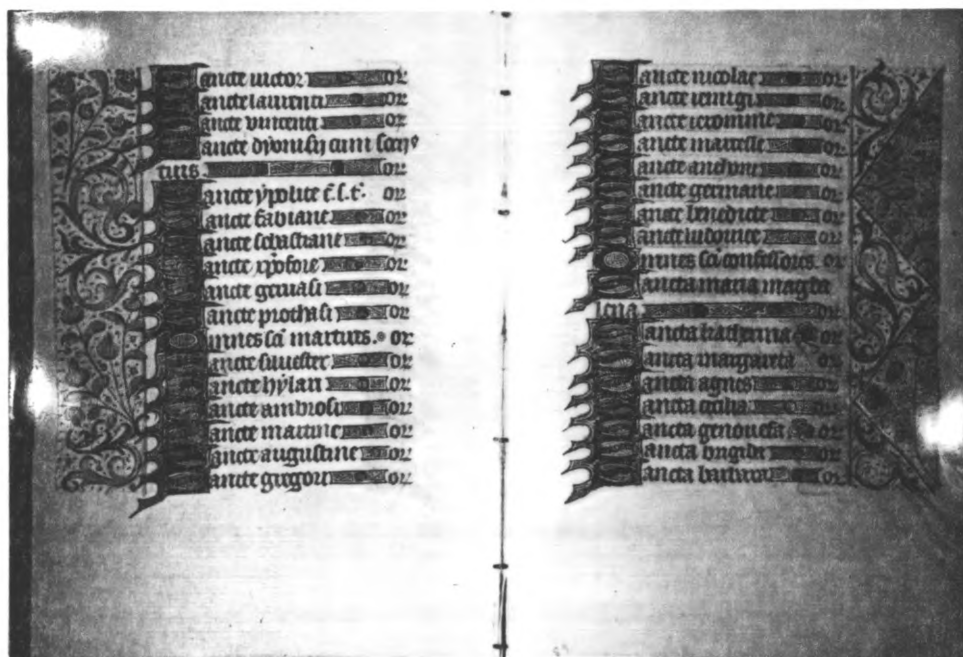 Sancte victor or
Sancte laurenti or
Sancte vincenti or
Sancte dyonisij cum socijs
tuis. or
Sancte ypolite c.s.t. or
Sancte fabiane or
Sancte sebastiane or
Sancte xpofore or
Sancte geruasi or
Sancte prothasi or
Omnes sci martires. or
Sancte siluester or
Sancte hylari or
Sancte ambrosi or
Sancte martine or
Sancte augustine or
Sancte gregori or
Sancte nicolae or
Sancte remigi or
Sancte ieronime or
Sancte marcelle or
Sancte audoene or
Sancte germane or
Sancte benedicte or
Sancte ludouice or
Omnes sci confessores. or
Sancta maria magda
lena. or
Sancta katherina or
Sancta margareta or
Sancta agnes or
Sancta cecilia or
Sancta genouefa or
Sancta brigida or
Sancta barbara or